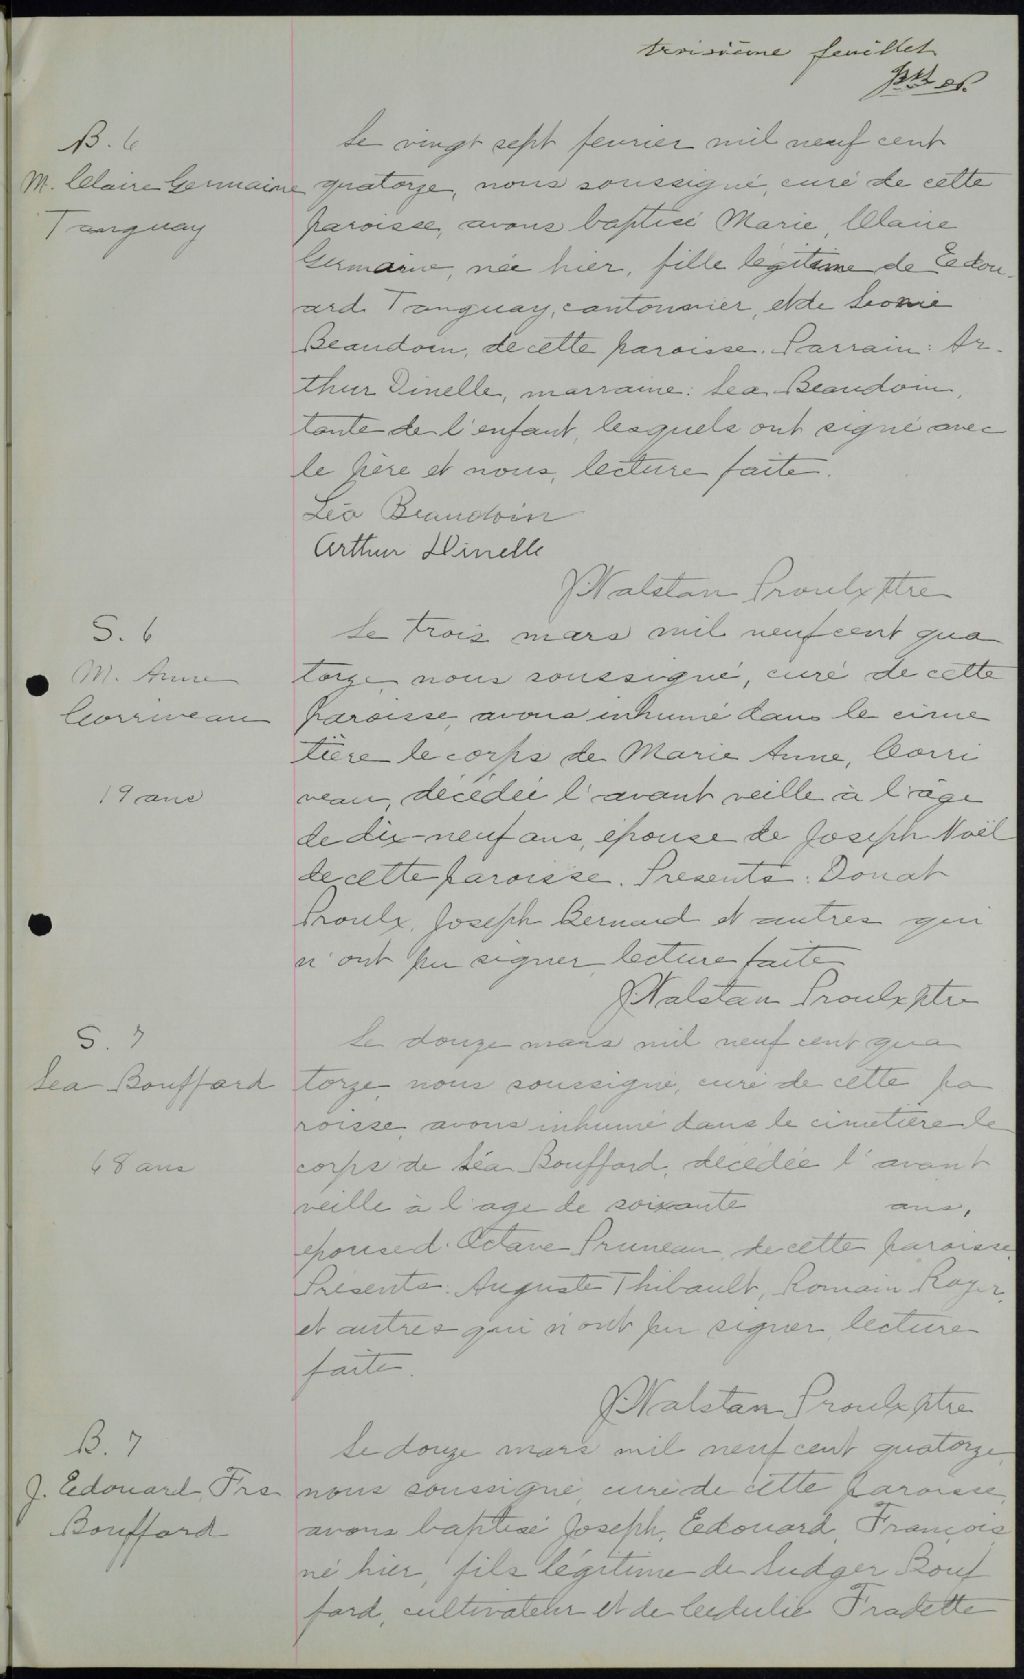 troisième feuillet
B. 6
M. Claire Germaine
Tanguay
Le vingt sept fevrier mil neuf cent
quatorze, nous soussigné, curé de cette
paroisse, avons baptisé Marie, Claire
Germaine, née hier, fille légitime de Edou-
ard Tanguay, cantonnier, et de Leonie
Beaudoin, de cette paroisse. Parrain: Ar-
thur Dinelle, marraine: Lea Beaudoin,
tante de l'enfant, lesquels ont signé avec
le père et nous, lecture faite.
Léa Beaudoin
Arthur Dinelle
J. Walstan Proulx ptre
S. 6
M. Anne
Corriveau
19 ans
Le trois mars mil neuf cent qua
torze, nous soussigné, curé de cette
paroisse, avons inhumé dans le cime
tière le corps de Marie Anne, Corri
veau, décédée l'avant veille à l'âge
de dix-neuf ans, épouse de Joseph Noël
de cette paroisse. Presents: Donat
Proulx, Joseph Bernard et autres qui
n'ont pu signer, lecture faite
J. Walstan Proulx ptre
S. 7
Lea Bouffard
68 ans
Le douze mars mil neuf cent qua
torze, nous soussigné, curé de cette pa
roisse, avons inhumé dans le cimetière le
corps de Léa Bouffard, décédée l'avant
veille à l'age de soixante ans,
epouse d'Octave Pruneau, de cette paroisse.
Présents: Auguste Thibault, Romain Roger,
et autres qui n'ont pu signer, lecture
faite.
J. Walstan Proulx ptre
B. 7
J. Edouard, Frs
Bouffard
Le douze mars mil neuf cent quatorze,
nous soussigné, curé de cette paroisse,
avons baptisé Joseph, Edouard, François,
né hier, fils légitime de Ludger Bouf
fard, cultivateur et de Cedulie Fradette